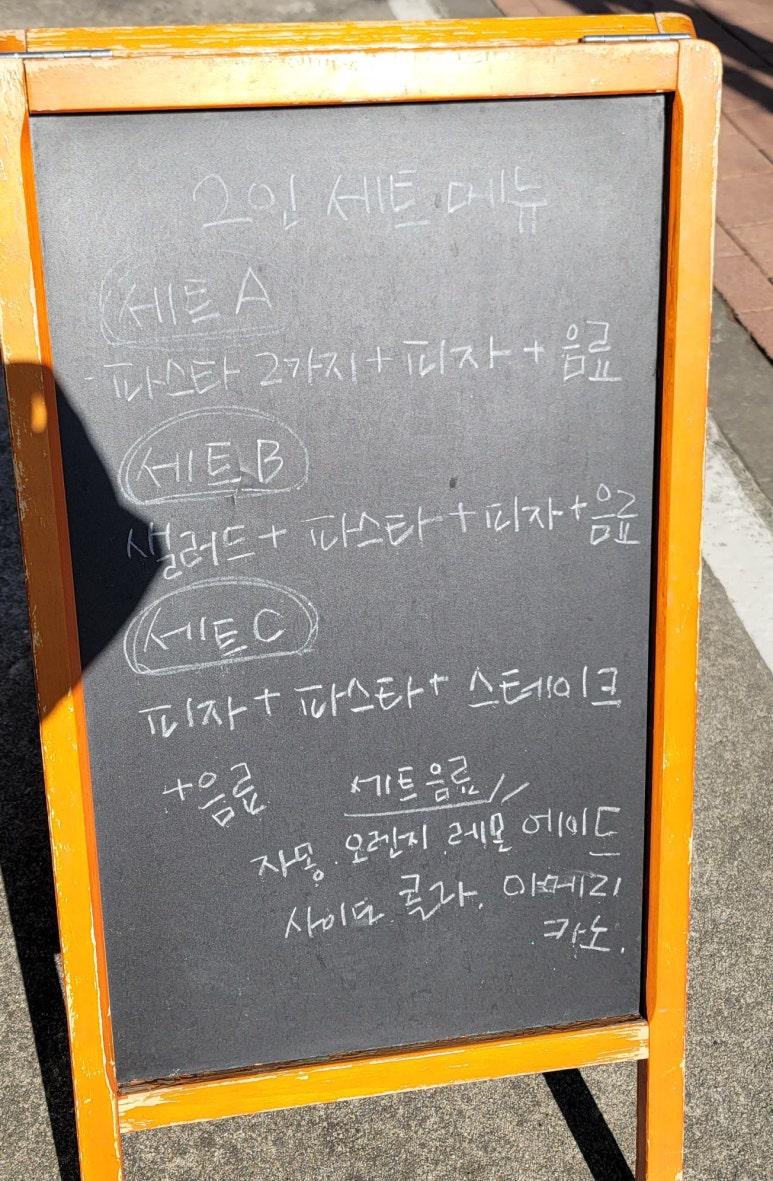 2인 세트 메뉴
세트 A
- 파스타 2가지 + 피자 + 음료
세트 B
샐러드 + 파스타 + 피자 + 음료
세트 C
피자 + 파스타 + 스테이크
+ 음료
세트음료
자몽. 오렌지. 레몬 에이드
사이다. 콜라. 아메리
카노.